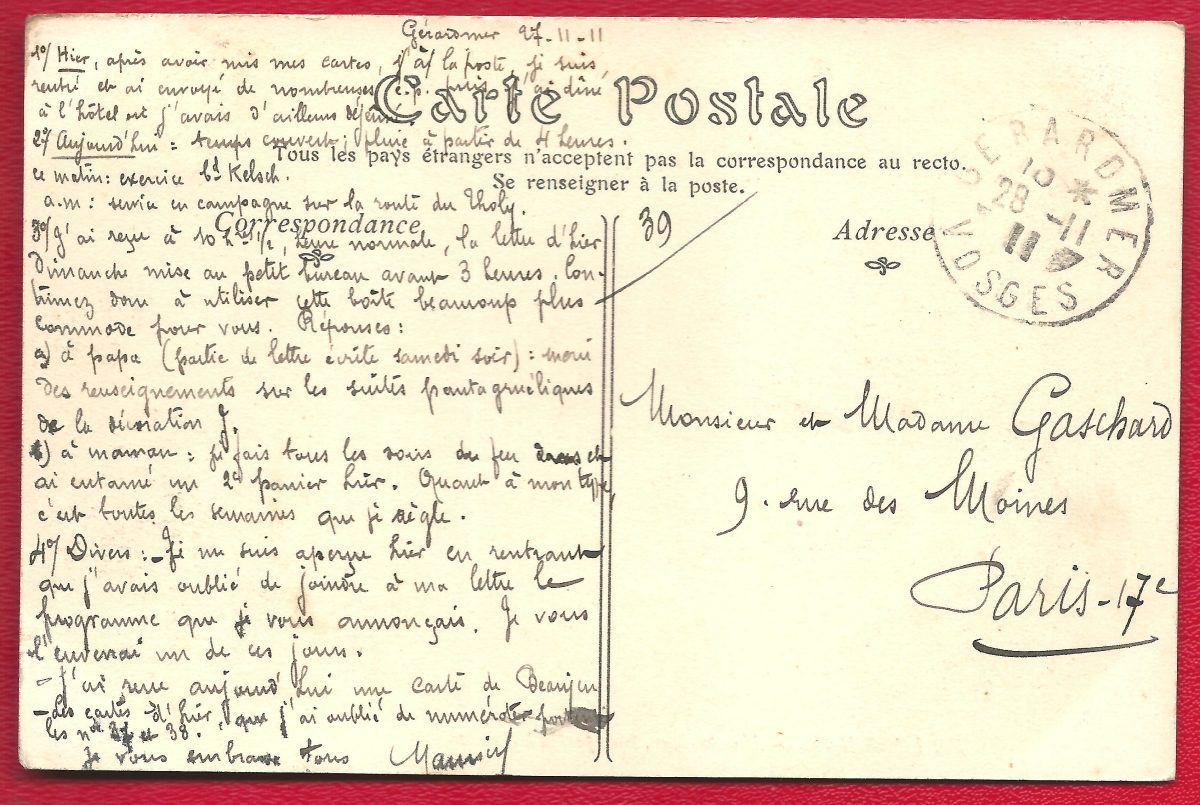 Gérardmer 27-11-11
1°/ Hier, après avoir mis mes cartes, à la poste, je suis
rentré et ai envoyé de nombreuses c.p. puis j'ai dîné
à l'hôtel où j'avais d'ailleurs déjeuné.
2°/ Aujourd'hui : temps couvert ; pluie à partir de 4 heures.
ce matin : exercice bd Kelsch.
a.m : service en campagne sur la route du Tholy.
3°/ J'ai reçu à 10 h 1/2, heure normale, la lettre d'hier
dimanche mise au petit bureau avant 3 heures. Con-
tinuez donc à utiliser cette boîte beaucoup plus
commode pour vous. Réponses :
a) à papa (partie de lettre écrite samedi soir) : merci
des renseignements sur les suites pantagruéliques
de la décoration J.
b) à maman : je fais tous les soirs du feu et
ai entamé un 2e panier hier. Quant à mon type,
c'est toutes les semaines que je règle.
4°/ Divers : - Je me suis aperçu hier en rentrant
que j'avais oublié de joindre à ma lettre le
programme que je vous annonçais. Je vous
l'enverrai un de ces jours.
- J'ai reçu aujourd'hui une carte de Beaujeu
- les cartes d'hier, que j'ai oublié de numéroter portent
les nos 37 et 38.
Je vous embrasse tous
Carte Postale
Tous les pays étrangers n'acceptent pas la correspondance au recto.
Se renseigner à la poste.
Correspondance
39
Adresse
GERARDMER
28 -11
11
VOSGES
Monsieur et Madame Gaschard
9. rue des Moines
Paris-17e